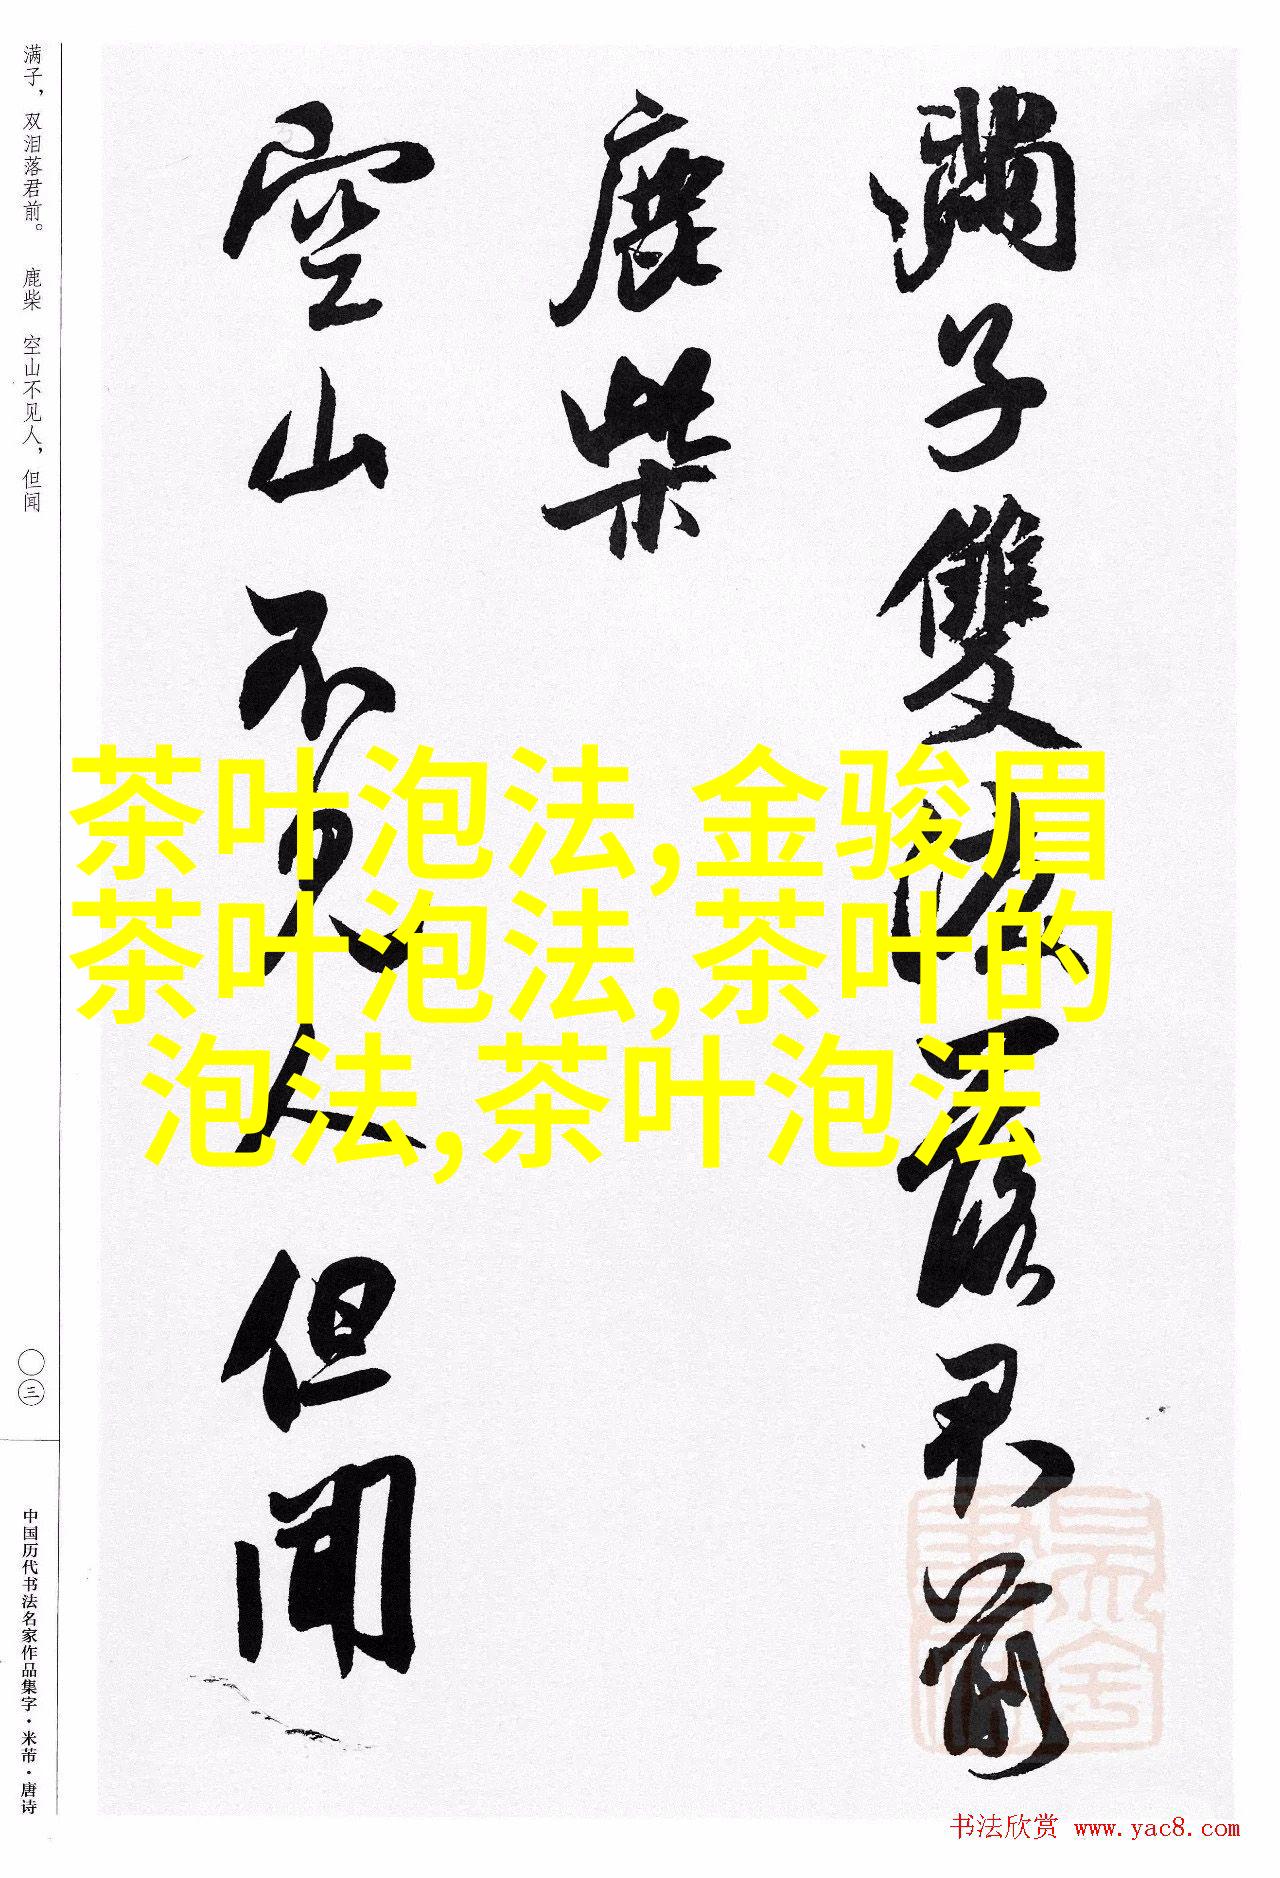 满子，双泪落君前。 鹿柴 空山不见人，但闻
滿子雙淚落君前
鹿柴
空山不見人但聞
茶叶泡法,金骏眉
茶叶泡法,茶叶的
泡法,茶叶泡法
〇三
中国历代书法名家作品集字·米芾·唐诗
书法欣赏 www.yac8.com